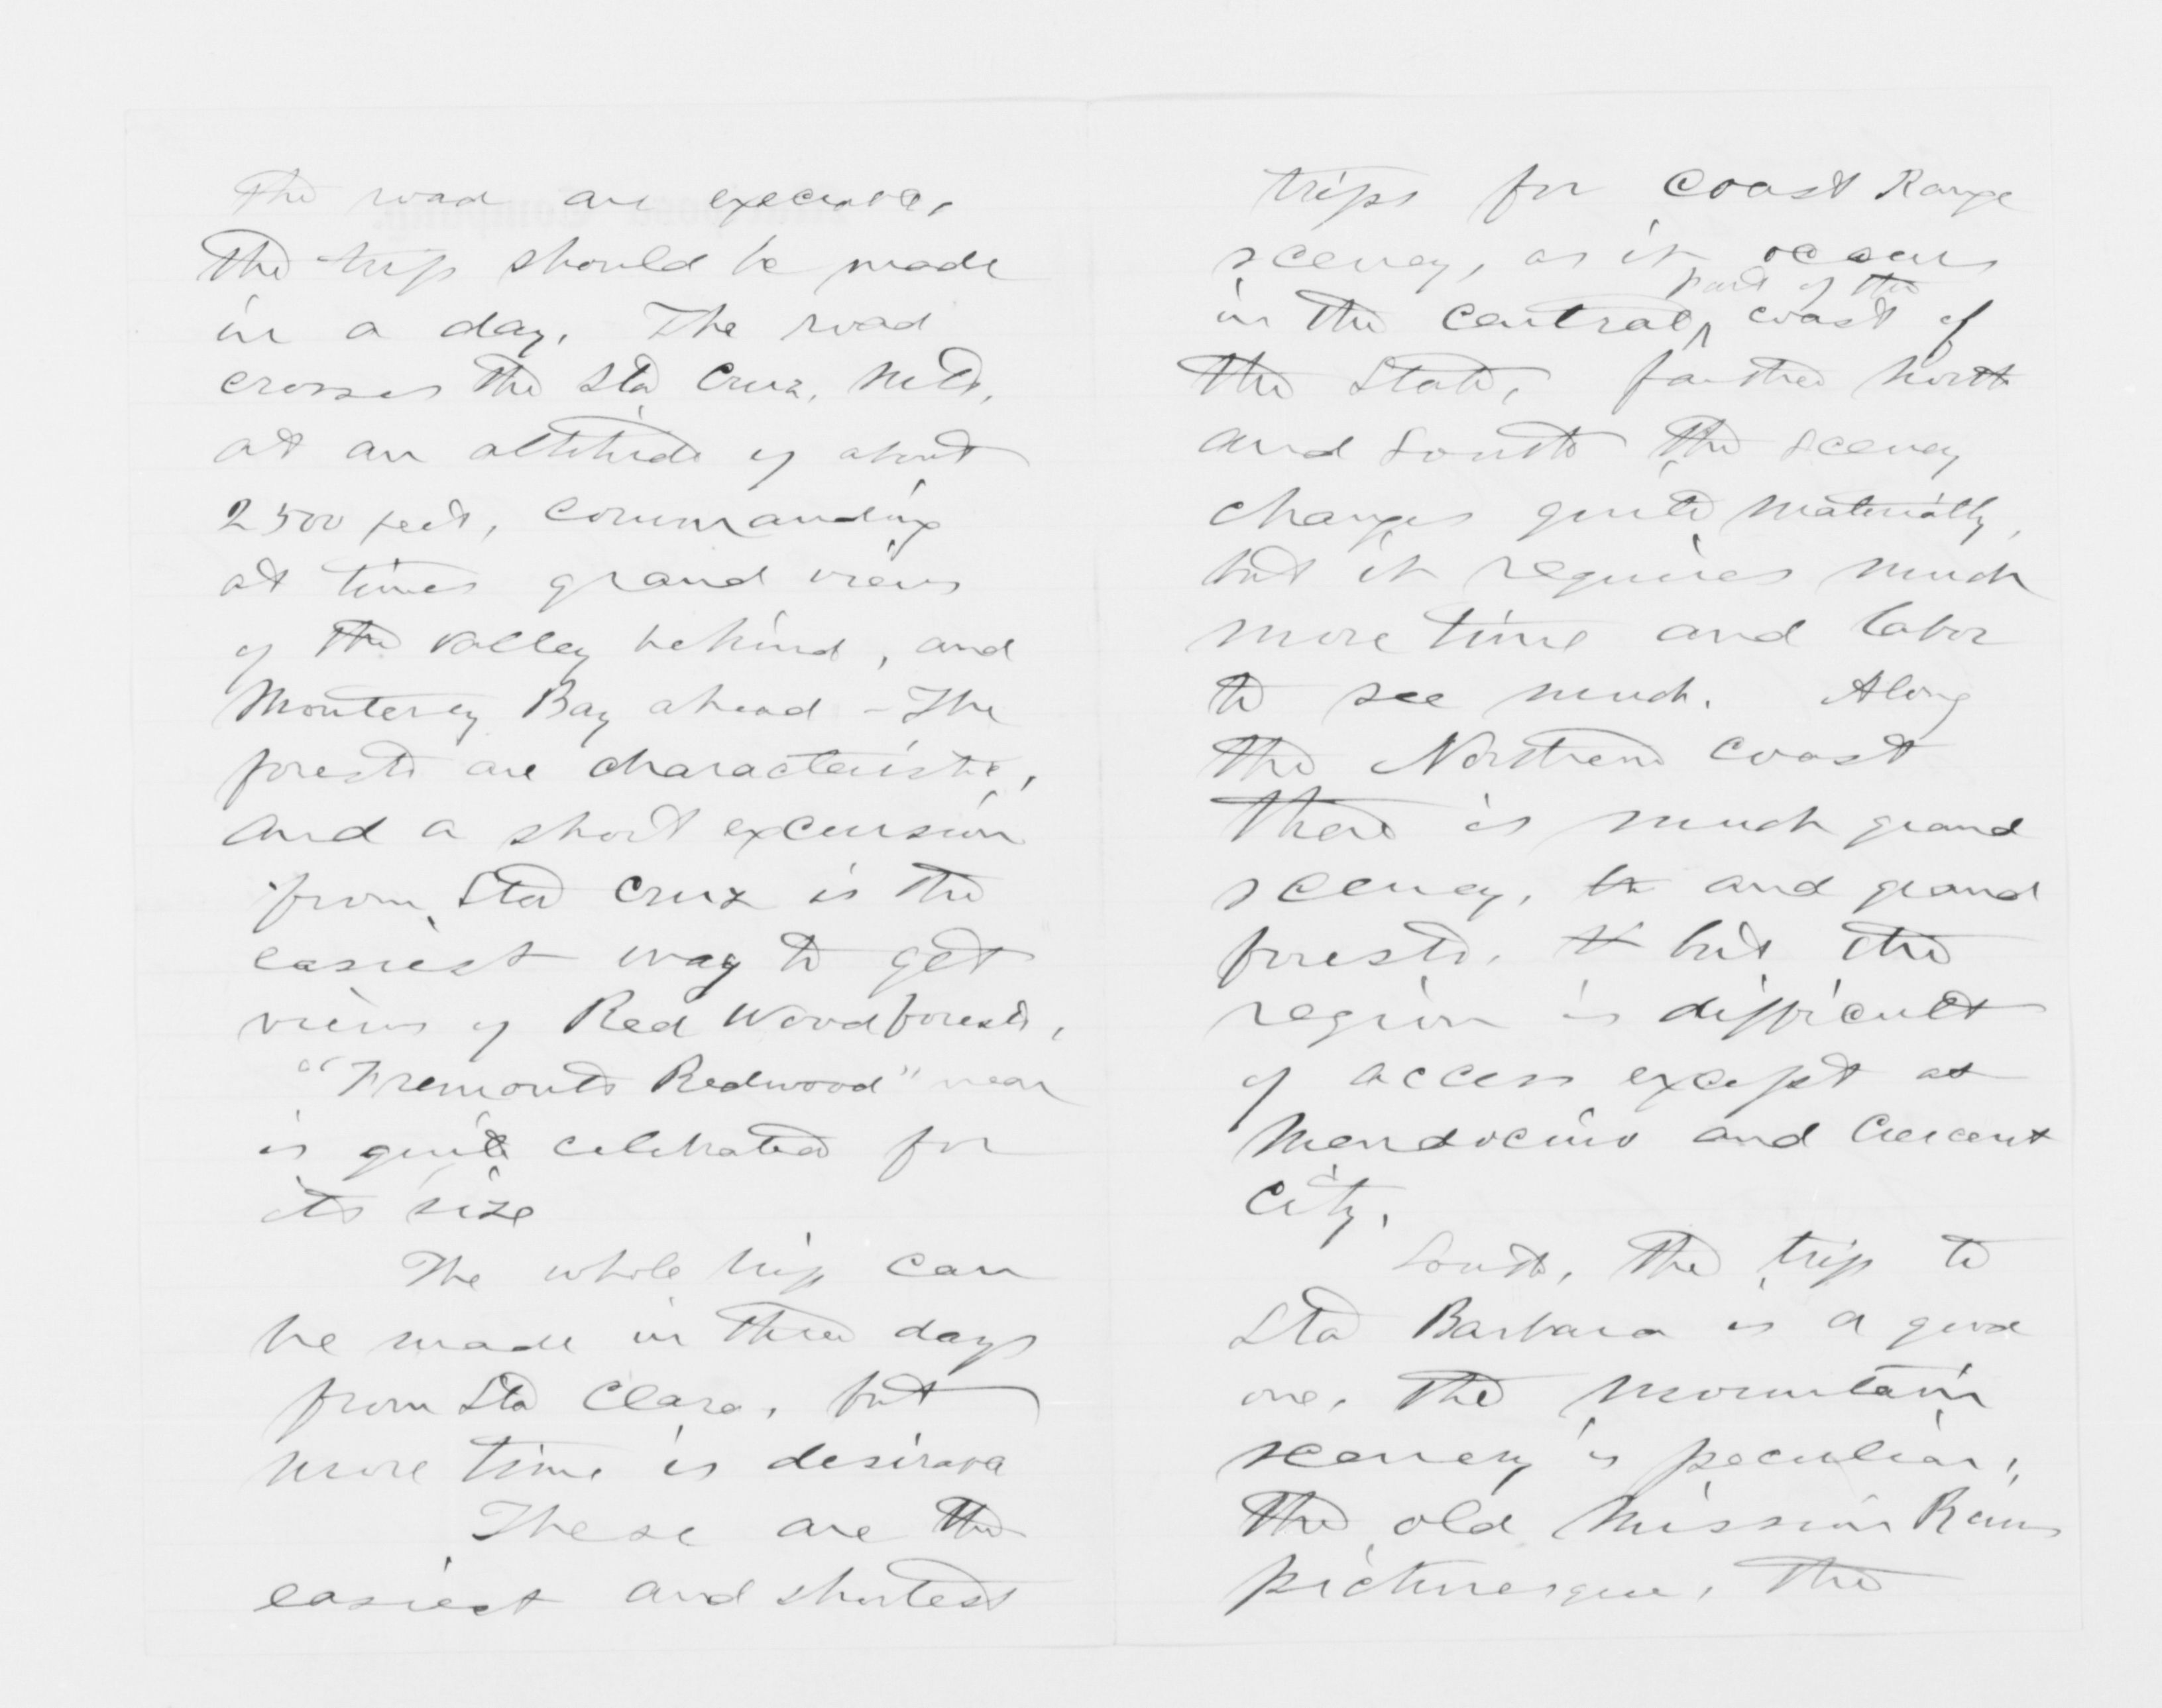 The road are execrable,
The trip should be made
in a day. The road
crosses the Sta Cruz, Mts,
at an altitude of about
2500 feet, commanding
at times grand views
of the valley behind, and
Monterey Bay ahead - The
forests are characteristic,
and a short excursion
from Sta Cruz is the
easiest way to get
views of Red Wood forests,
"Fremonts Redwood" near
is quite celebrated for
its size
The whole trip can
be made in three days
from Sta Clara, but
more time is desirable
These are the
easiest and shortest
trips for Coast Range
scenery, as it occurs
part of the
in the central coast of
the State, farther north
and south the scenery
changes quite materially,
but it requires much
more time and labor
to see much. Along
the Northern Coast
there is much grand
scenery, and grand
forests, but the
region is difficult
of access except at
Mendocino and Crescent
City.
South, the trip to
Sta Barbara is a good
one, The mountain
scenery is peculiar,
The old Mission Ruins
picturesque, The